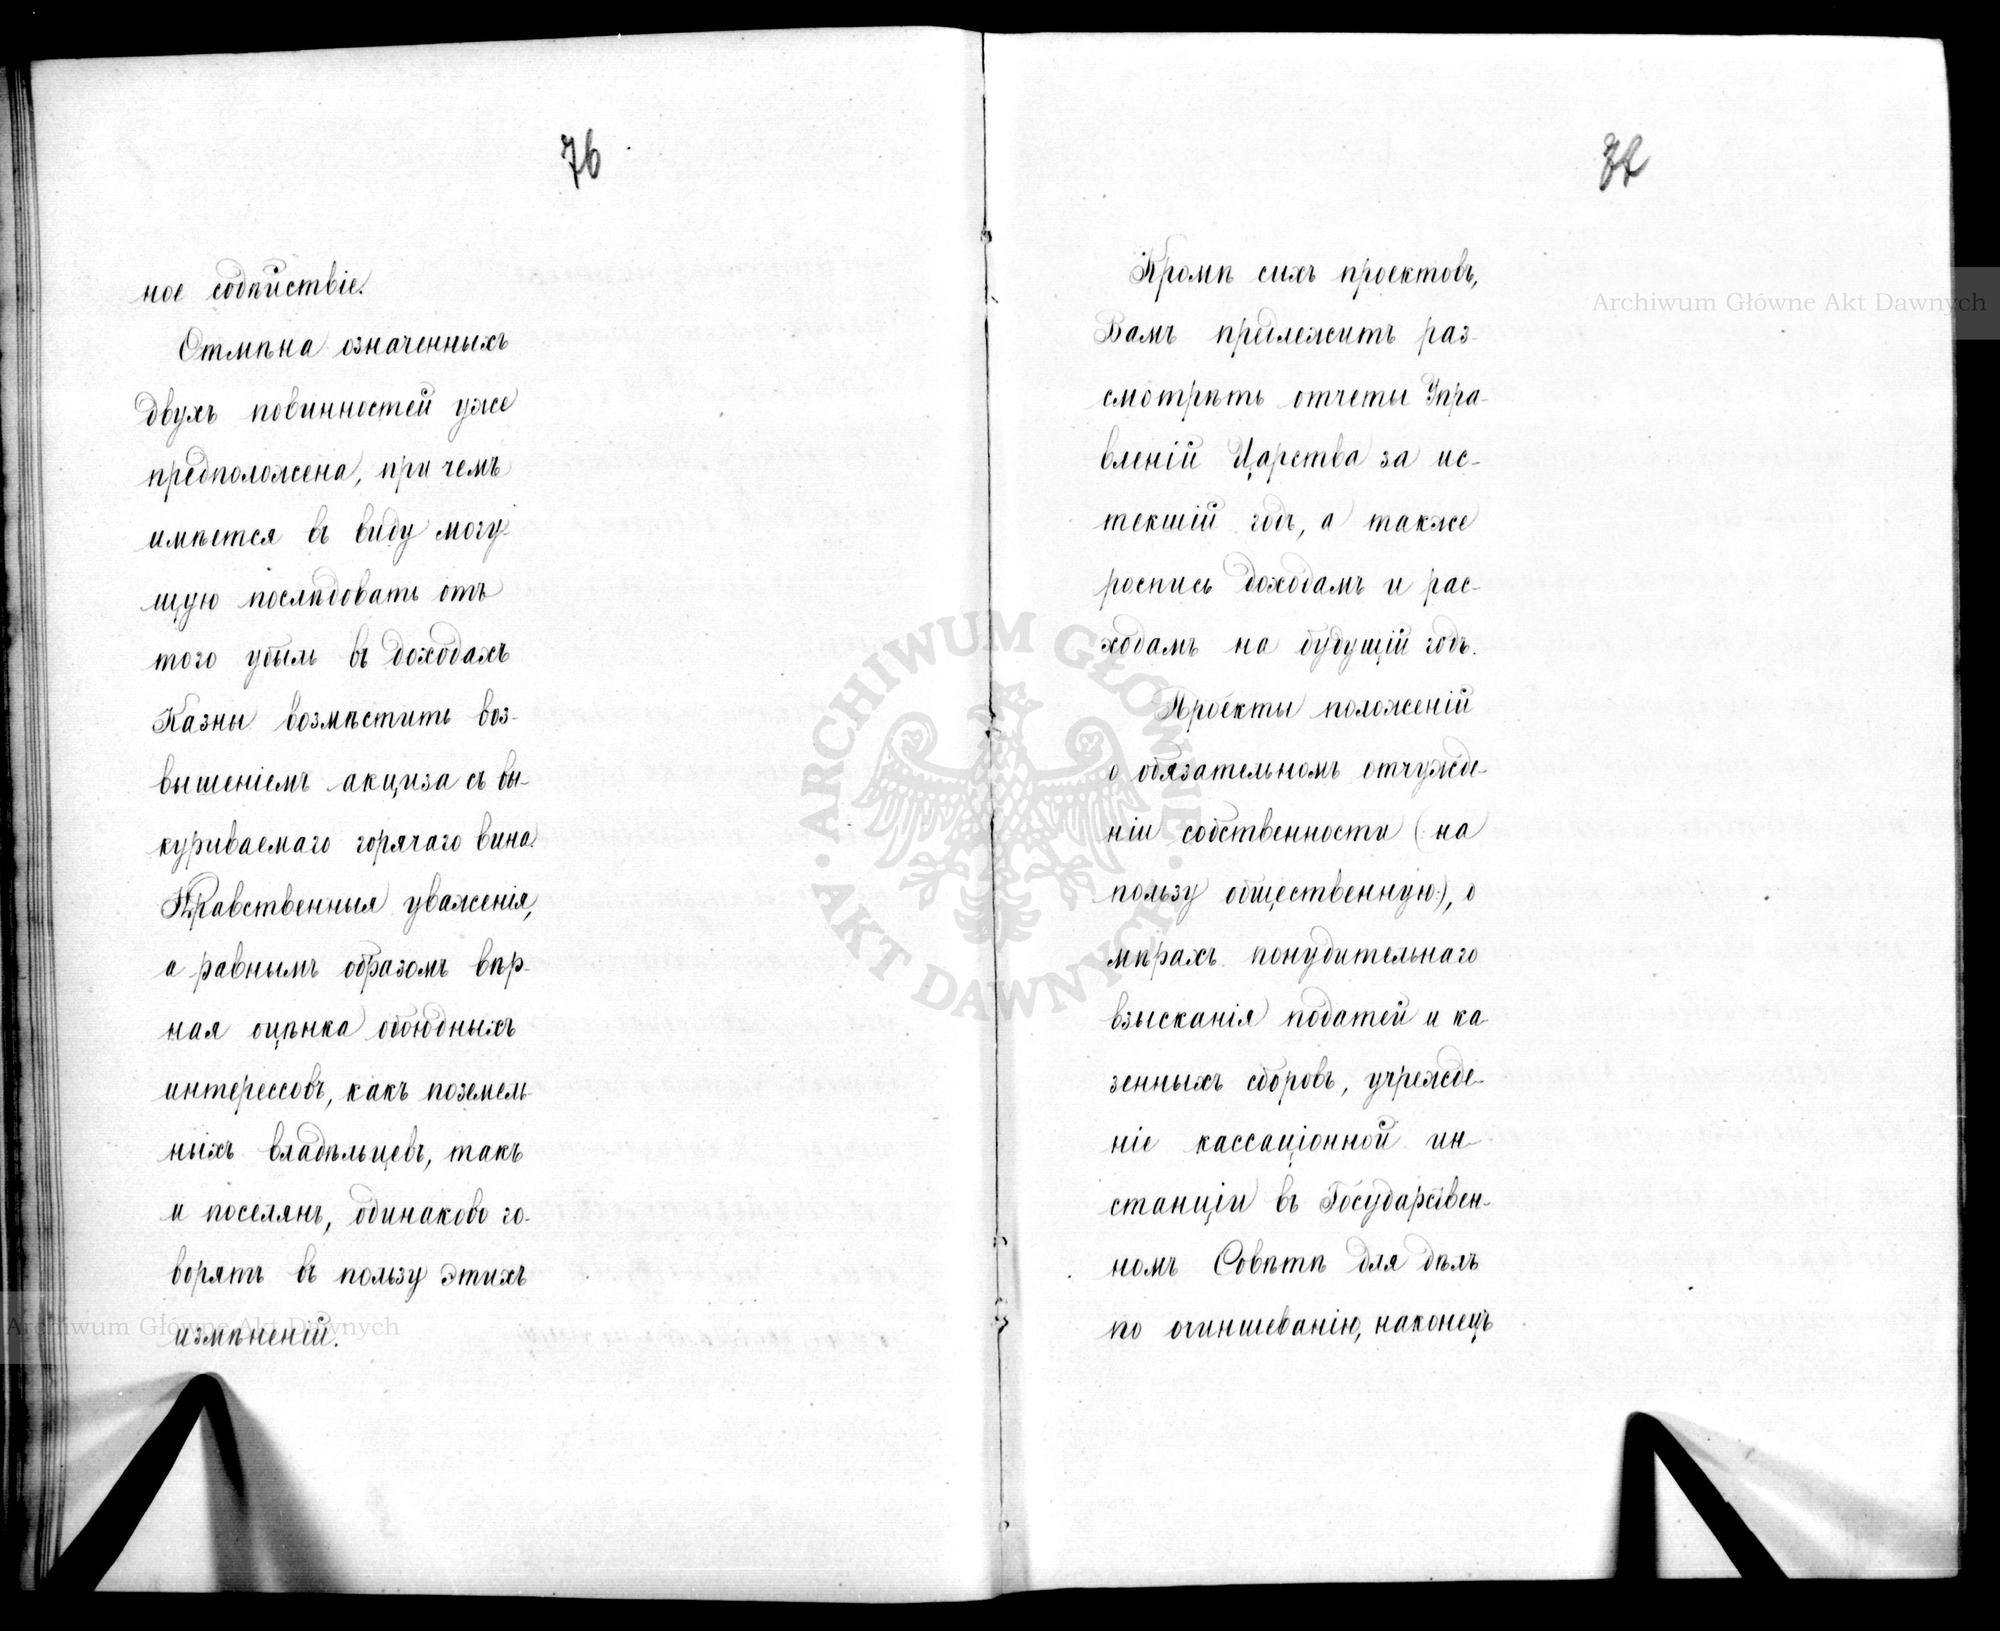 76
ное содѣйствіе.
Отмѣна означенныхъ
двухъ повинностей уже
предположена, при чемъ
имѣется въ виду могу-
щую послѣдовать отъ
того убыль въ доходахъ
Казны возмѣстить воз-
вышеніемъ акциза съ вы-
куриваемаго горячаго вина.
Нравственныя уваженія,
а равнымъ образомъ вѣр-
ная оцѣнка обоюдныхъ
интерессовъ, какъ поземель-
ныхъ владѣльцевъ, такъ
и поселянъ, одинаково го-
ворятъ въ пользу этихъ
измѣненій.
Кромѣ сихъ проектовъ,
Вамъ предлежитъ раз-
смотрѣть отчеты Упра-
вленій Царства за ис-
текшій годъ, а также
роспись доходамъ и рас-
ходамъ на будущій годъ.
Проекты положеній
о обязательномъ отчужде-
ніи собственности (: на
пользу общественную:), о
мѣрахъ понудительнаго
взысканія податей и ка-
зенныхъ сборовъ, учрежде-
ніе кассаціонной ин-
станціи въ Государствен-
номъ Совѣтѣ для дѣлъ
по очиншеванію, наконецъ
Archiwum Główne Akt Dawnych
Archiwum Główne Akt Dawnych
ARCHIWUM GŁÓWNE · AKT DAWNYCH ·